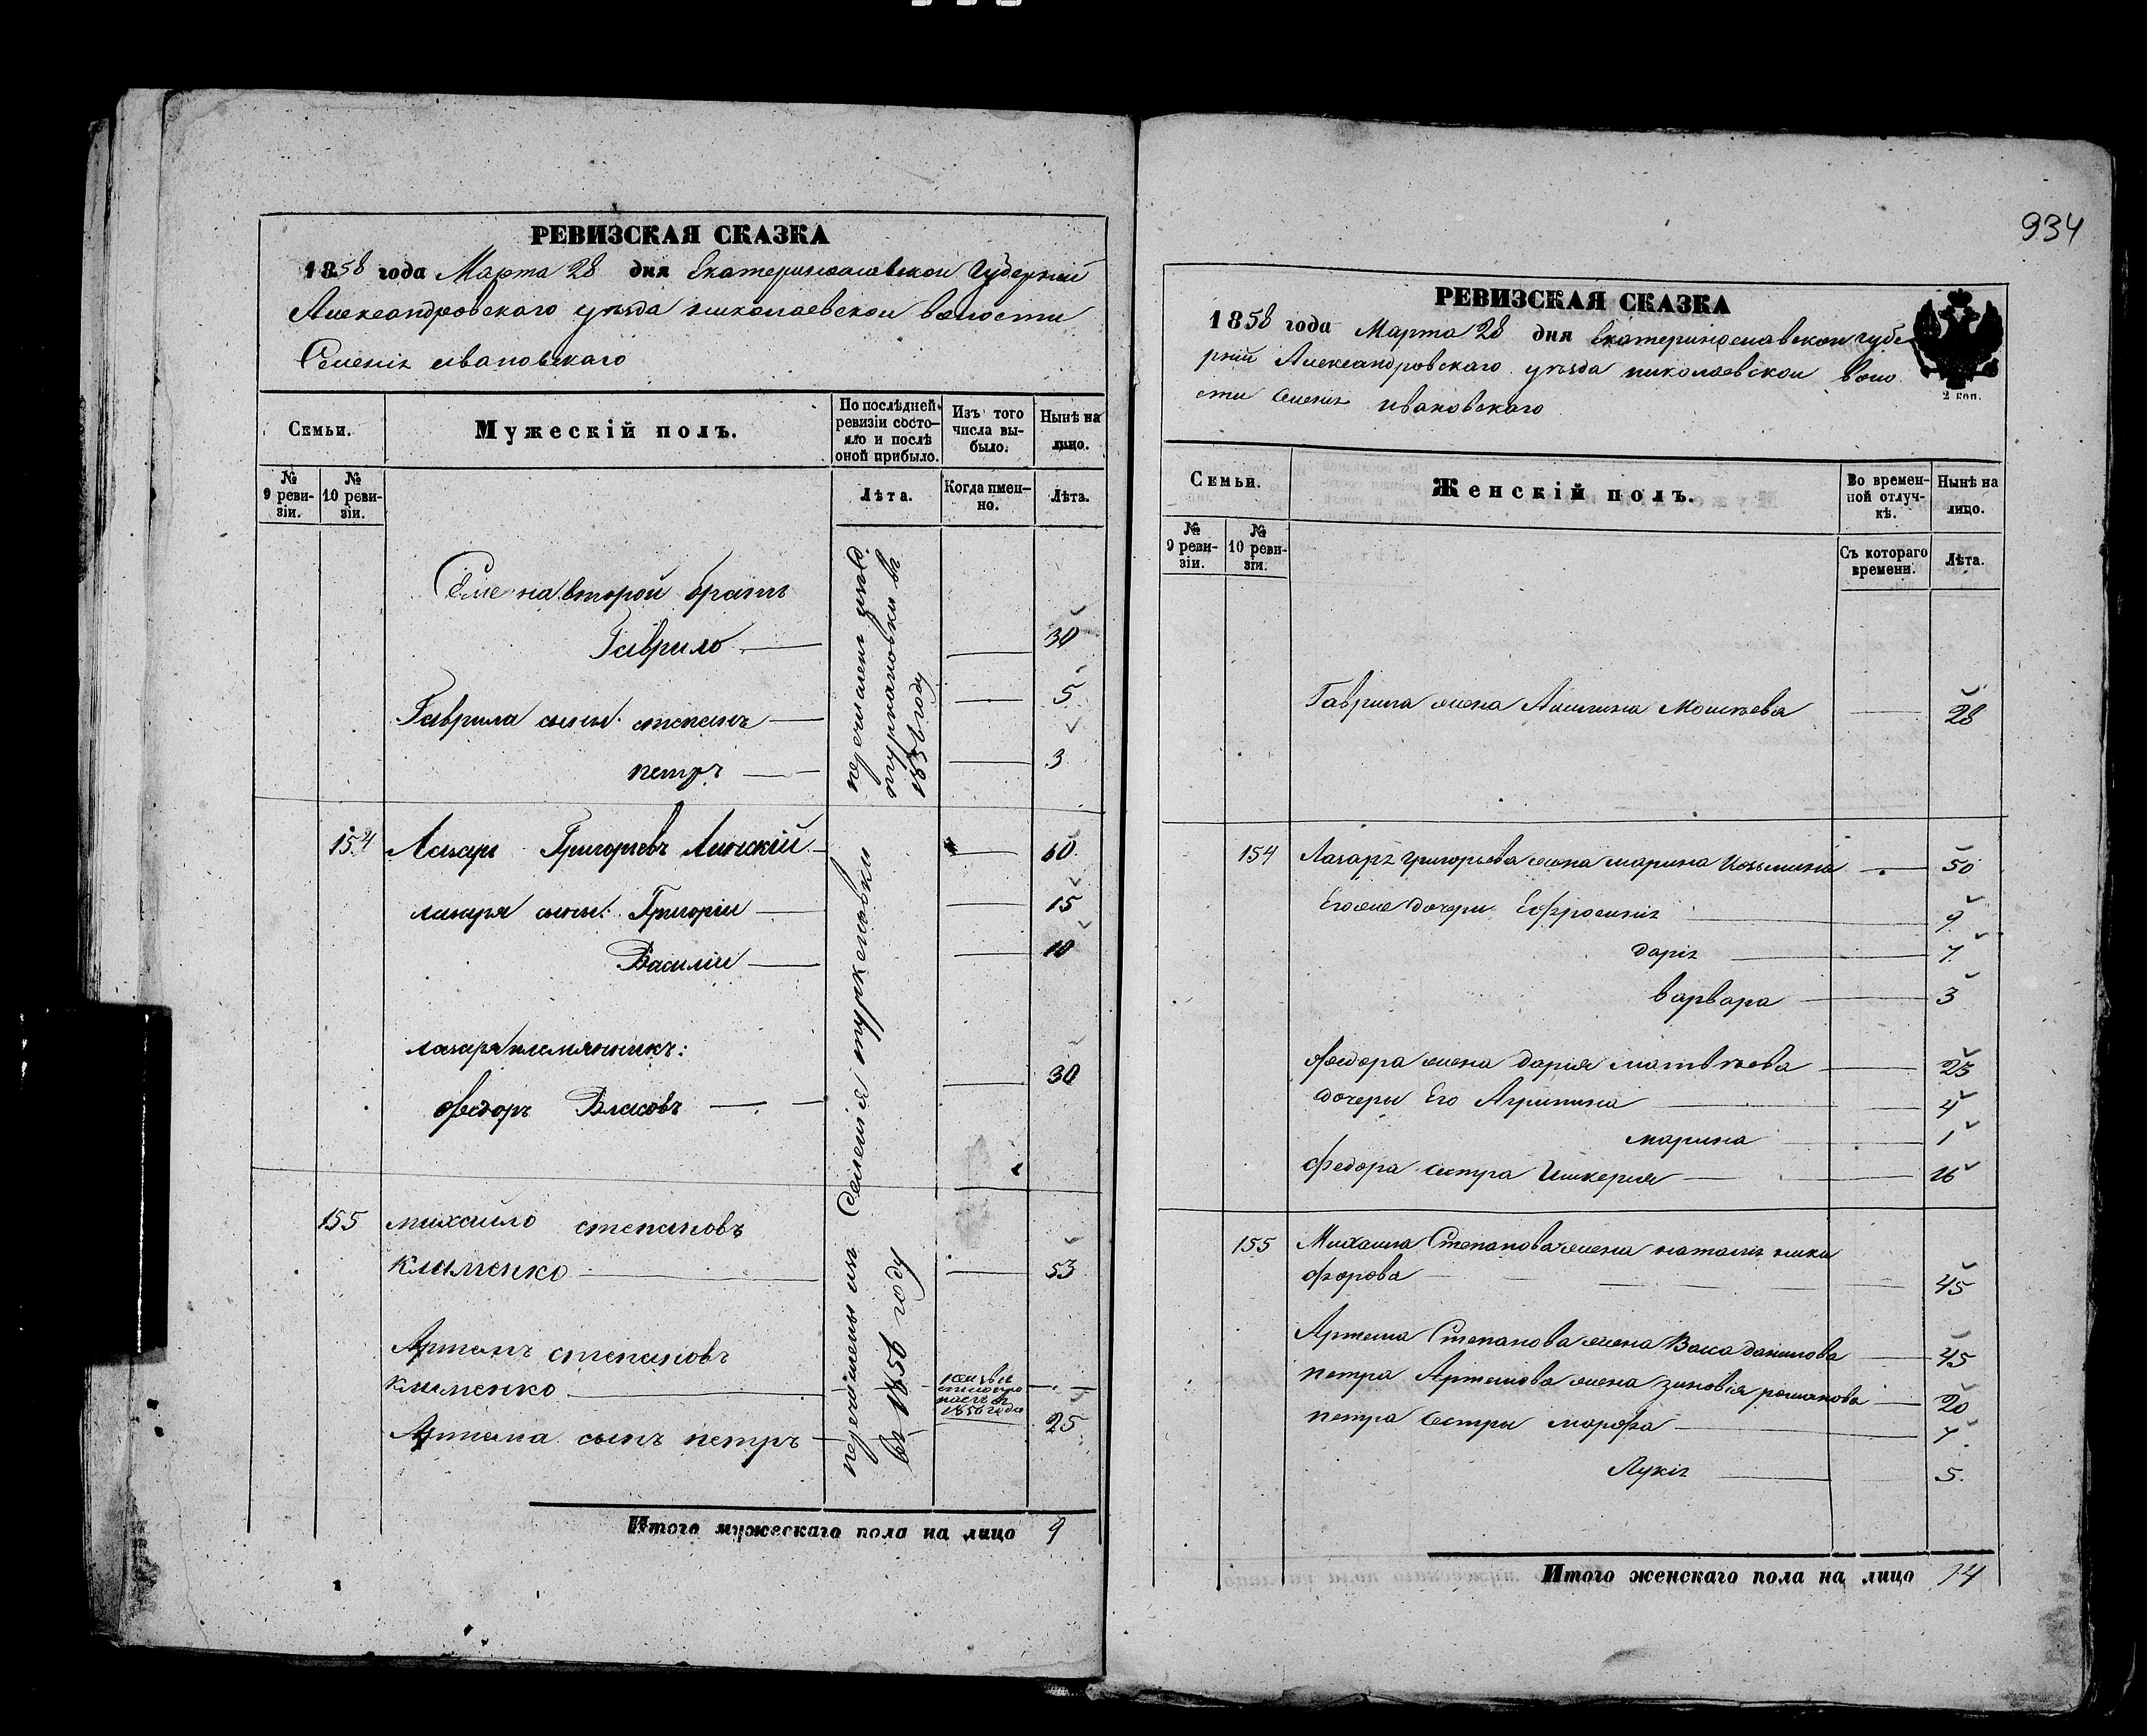 934
РЕВИЗСКАЯ СКАЗКА
1858 года Марта 28 дня Екатеринославской Губерніи
Александровскаго уѣзда николаевской волости
Селенія ивановскаго
Семьи.
Мужескій полъ.
По послѣдней ревизіи состояло и послѣ оной прибыло.
Изъ того числа выбыло.
Нынѣ на лицо.
№ 9 ревизіи.
№ 10 ревизіи.
Лѣта.
Когда именно.
Лѣта.
Семена второй братъ
Гаврило 30
Гаврила сыны: степанъ 5
петръ 3
въ
1856 году
154 Лазарь Григорьевъ Линскій 60
лазаря сыны: Григоріи 15
Василіи 10
лазаря племянникъ:
Федоръ Власовъ 30
155 михаило степановъ
клименко 53
Артемъ степановъ
клименко
1856 года
Артема сынъ петръ 25
перечислены изъ Селенія туркеновки
въ 1856 году
Итого мужескаго пола на лицо 9
РЕВИЗСКАЯ СКАЗКА
1858 года Марта 28 дня Екатеринославской губе
рніи Александровскаго уѣзда николаевской воло
сти Селенія ивановскаго
2 коп.
Семьи.
Женскій полъ.
Во временной отлучкѣ.
Нынѣ на лицо.
№ 9 ревизіи.
№ 10 ревизіи.
Съ котораго времени.
Лѣта.
Гаврила жена Акилина Мошѣева 28
154 Лазаря григорьева жена марина Козьмина 50
Его же дочери Ефросинія 9
дарія 7
варвара 3
Федора жена дарія матвѣева 25
дочеры Его Агрипина 4
марина 1
Федора сестра 16
155 Михаила Степанова жена наталія ники
форова 45
Артема Степанова жена Васа данилова 45
петра Артемова жена зиновія романова 20
петра сестры марфа 7
Лукія 5
Итого женскаго пола на лицо 14